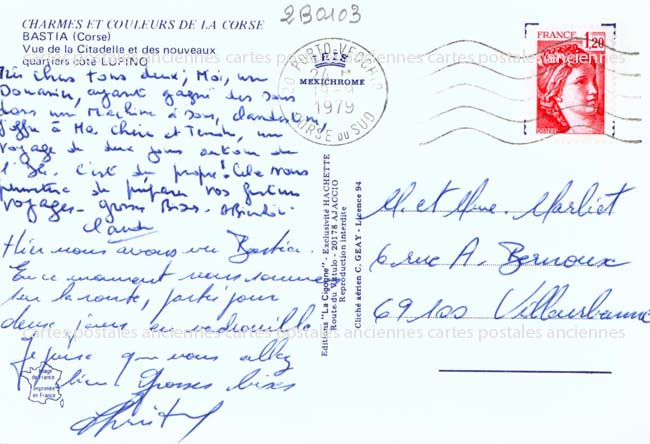 CHARMES ET COULEURS DE LA CORSE
BASTIA (Corse)
Vue de la Citadelle et des nouveaux
quartiers côté LUPINO
2B0103
MEXICHROME
PORTO-VECCHIO
1979
CORSE DU SUD
FRANCE
1,20
POSTES
Très chers tous deux; Moi, un
Douanier, ayant gagné des sous
dans un Machine à sous, clandestine,
J'offre à Ma Chère et Tendre, un
voyage de deux jours autour de
l'Ile. C'est du propre! Cela vous
permettra de préparer vos futurs
voyages - grosses Bises. A Bientôt.
Claude
Hier nous avons vu Bastia.
En ce moment nous sommes
sur la route, partis pour
deux jours en vadrouille.
Je pense que vous allez
bien. Grosses bises
Editions "La Cigogne" - Exclusivité HACHETTE
Route du Vittulo - 20178 AJACCIO
Reproduction interdite
Cliché aérien C. GEAY - Licence 94
M. et Mme. Marliet
6 rue A. Bernoux
69100 Villeurbanne
cartes postales anciennes cartes postales anciennes cartes postales anciennes
cartes postales anciennes cartes postales anciennes cartes postales anciennes
Image
de France
imprimée
en France